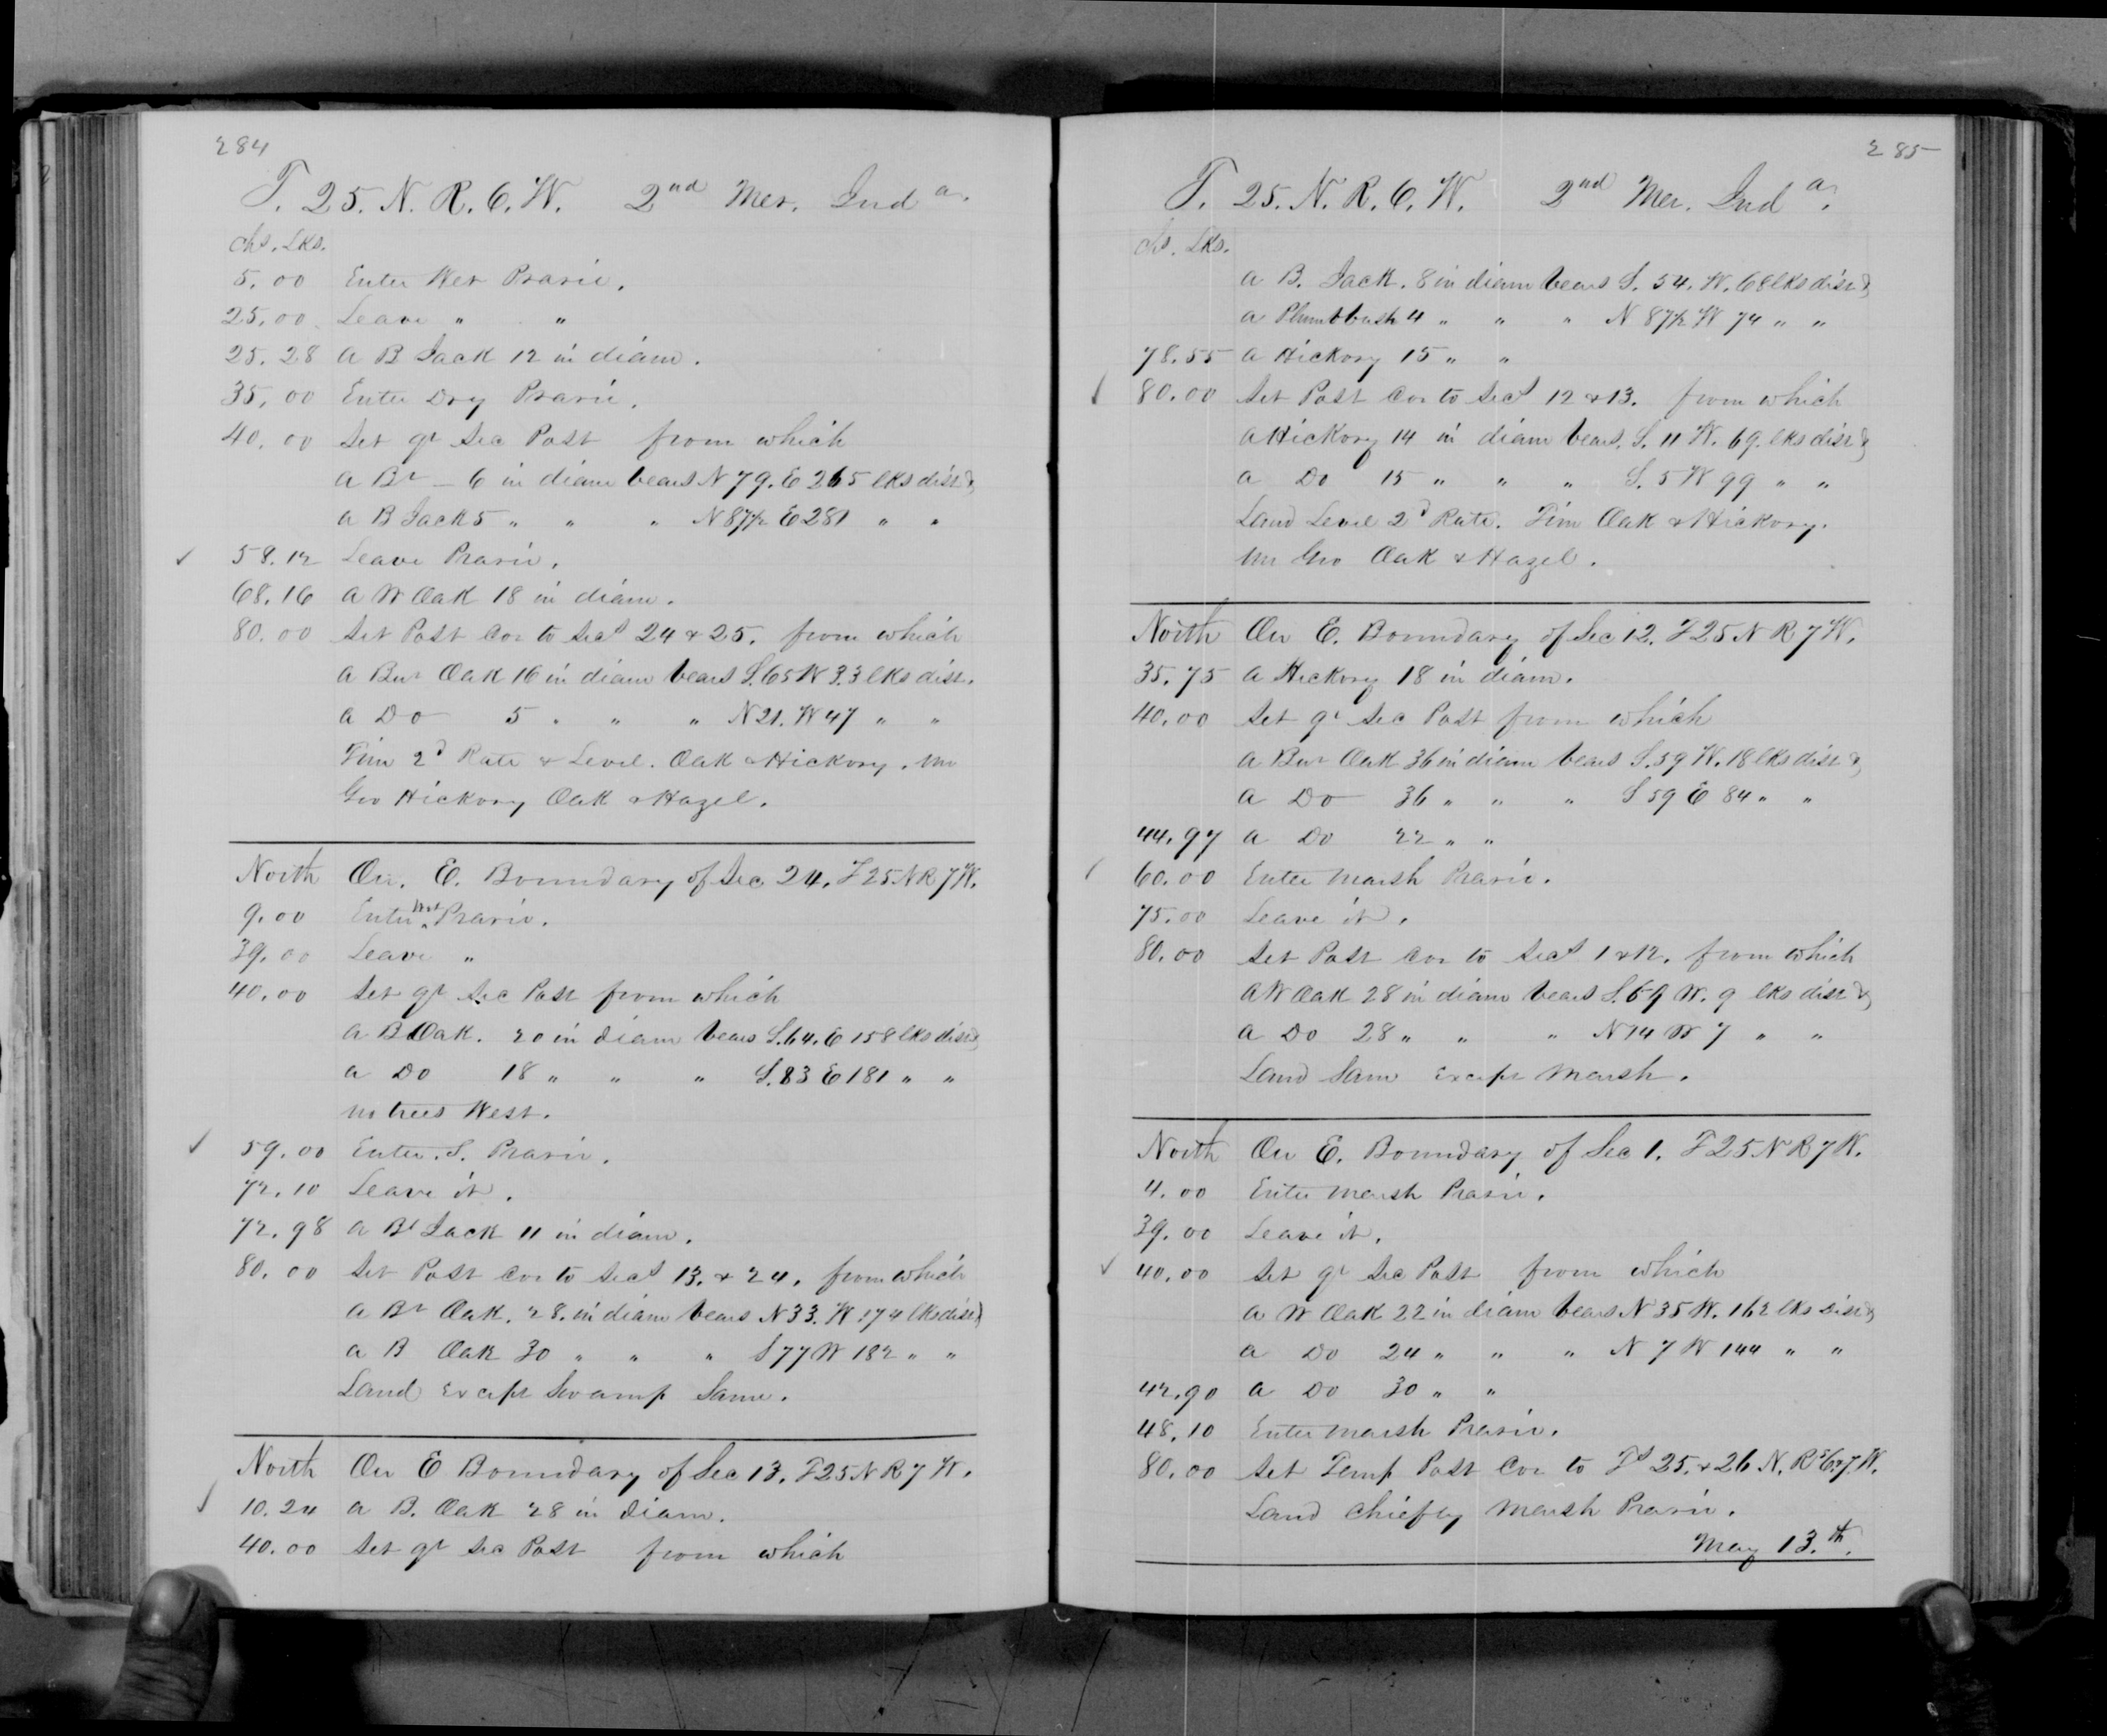 284
T. 25. N. R. 6. W. 2nd Mer. Inda.
Chs. Lks.
5.00 Enter Wet Prarie.
25.00 Leave " "
25.28 A B Jack 12 in diam.
35.00 Enter Dry Prarie.
40.00 Set qr Sec Post from which
A Br — 6 in diam bears N 79. E 265 lks dist &
A B Jack 5 " " " N 87½ E 281 " "
58.12 Leave Prarie.
68.16 A W Oak 18 in diam.
80.00 Set Post Cor to Secs 24 & 25. from which
A Bur Oak 16 in diam bears S. 65 W 33 lks dist.
A Do 5 " " " N 21. W 47 " "
Tim 2d Rate & Level. Oak & Hickory. Un
Gro Hickory Oak & Hazel.
North On. E. Boundary of Sec 24. T 25 N R 7 W.
9.00 Enter Wet Prarie.
39.00 Leave "
40.00 Set qr Sec Post from which
A B Oak. 20 in diam bears S. 64. E 158 lks dist &
A Do 18 " " " S. 83 E 181 " "
No trees West.
59.00 Enter. S. Prarie.
72.10 Leave it.
72.98 A Bl Jack 11 in diam.
80.00 Set Post Cor to Secs 13. & 24. from which
A Br Oak. 28. in diam bears N 33. W. 174 lks dist &
A B Oak 30 " " " S 77 W 182 " "
Land Except Swamp Same.
North On E Boundary of Sec 13. T 25 N R 7 W.
10.24 A B. Oak 28 in diam.
40.00 Set qr Sec Post from which
285
T. 25. N. R. 6. W. 2nd Mer. Inda.
Chs. Lks.
A B. Jack. 8 in diam bears S. 54. W. 68 lks dist &
A Plumb bush 4 " " " N 87½ W 74 " "
78.55 A Hickory 15 " "
80.00 Set Post Cor to Secs 12 & 13. from which
A Hickory 14 in diam bears. S. 11 W. 69. lks dist &
A Do 15 " " " S. 5 W 99 " "
Land Level 2d Rate. Tim Oak & Hickory.
Un Gro Oak & Hazel.
North On E. Boundary of Sec 12. T 25 N R 7 W.
35.75 A Hickory 18 in diam.
40.00 Set qr Sec Post from which
A Bur Oak 36 in diam bears S. 59 W. 18 lks dist &
A Do 36 " " " S 59 E 84 " "
44.97 A Do 22 " "
60.00 Enter Marsh Prarie.
75.00 Leave it.
80.00 Set Post Cor to Secs 1 & 12. from which
A W Oak 28 in diam bears S. 69 W. 9 lks dist &
A Do 28 " " " N 14 W 7 " "
Land Same Except Marsh.
North On E. Boundary of Sec 1. T 25 N R 7 W.
4.00 Enter Marsh Prarie.
39.00 Leave it.
40.00 Set qr Sec Post from which
A W Oak 22 in diam bears N 35 W. 162 lks Dist &
A Do 24 " " " N 7 W 144 " "
42.90 A Do 30 " "
48.10 Enter Marsh Prarie.
80.00 Set Temp Post Cor to Ts 25. & 26 N. Rs 6 & 7. W.
Land Chiefly Marsh Prarie.
May 13.th.